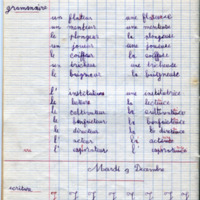 grammaire
un flatteur une flatteuse
un menteur une menteuse
le plongeur la plongeuse
un joueur une joueuse
le coiffeur la coiffeuse
un tricheur une tricheuse
le baigneur la baigneuse
l'instituteur l'institutrice
le lecteur la lectrice
le cultivateur la cultivatrice
le bienfaiteur la bienfaitrice
le directeur la directrice
l'acteur l'actrice
l'
Mardi 9 Décembre
écriture